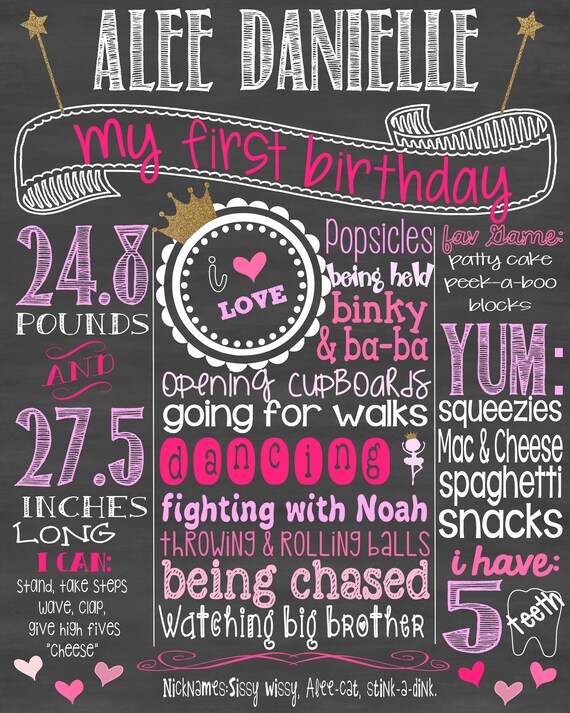 ALEE DANIELLE
my first birthday
24.8
POUNDS
AND
27.5
INCHES
LONG
I CAN:
stand, take steps
wave, clap,
give high fives
"cheese"
i ♥
LOVE
Popsicles
being held
binky
& ba-ba
opening cupboards
going for walks
dancing
fighting with Noah
THROWING & ROLLING BALLS
being chased
Watching big brother
fav Game:
patty cake
peek-a-boo
blocks
YUM:
squeezies
Mac & Cheese
spaghetti
snacks
i have:
5 teeth
Nicknames:Sissy wissy, Alee-cat, stink-a-dink.